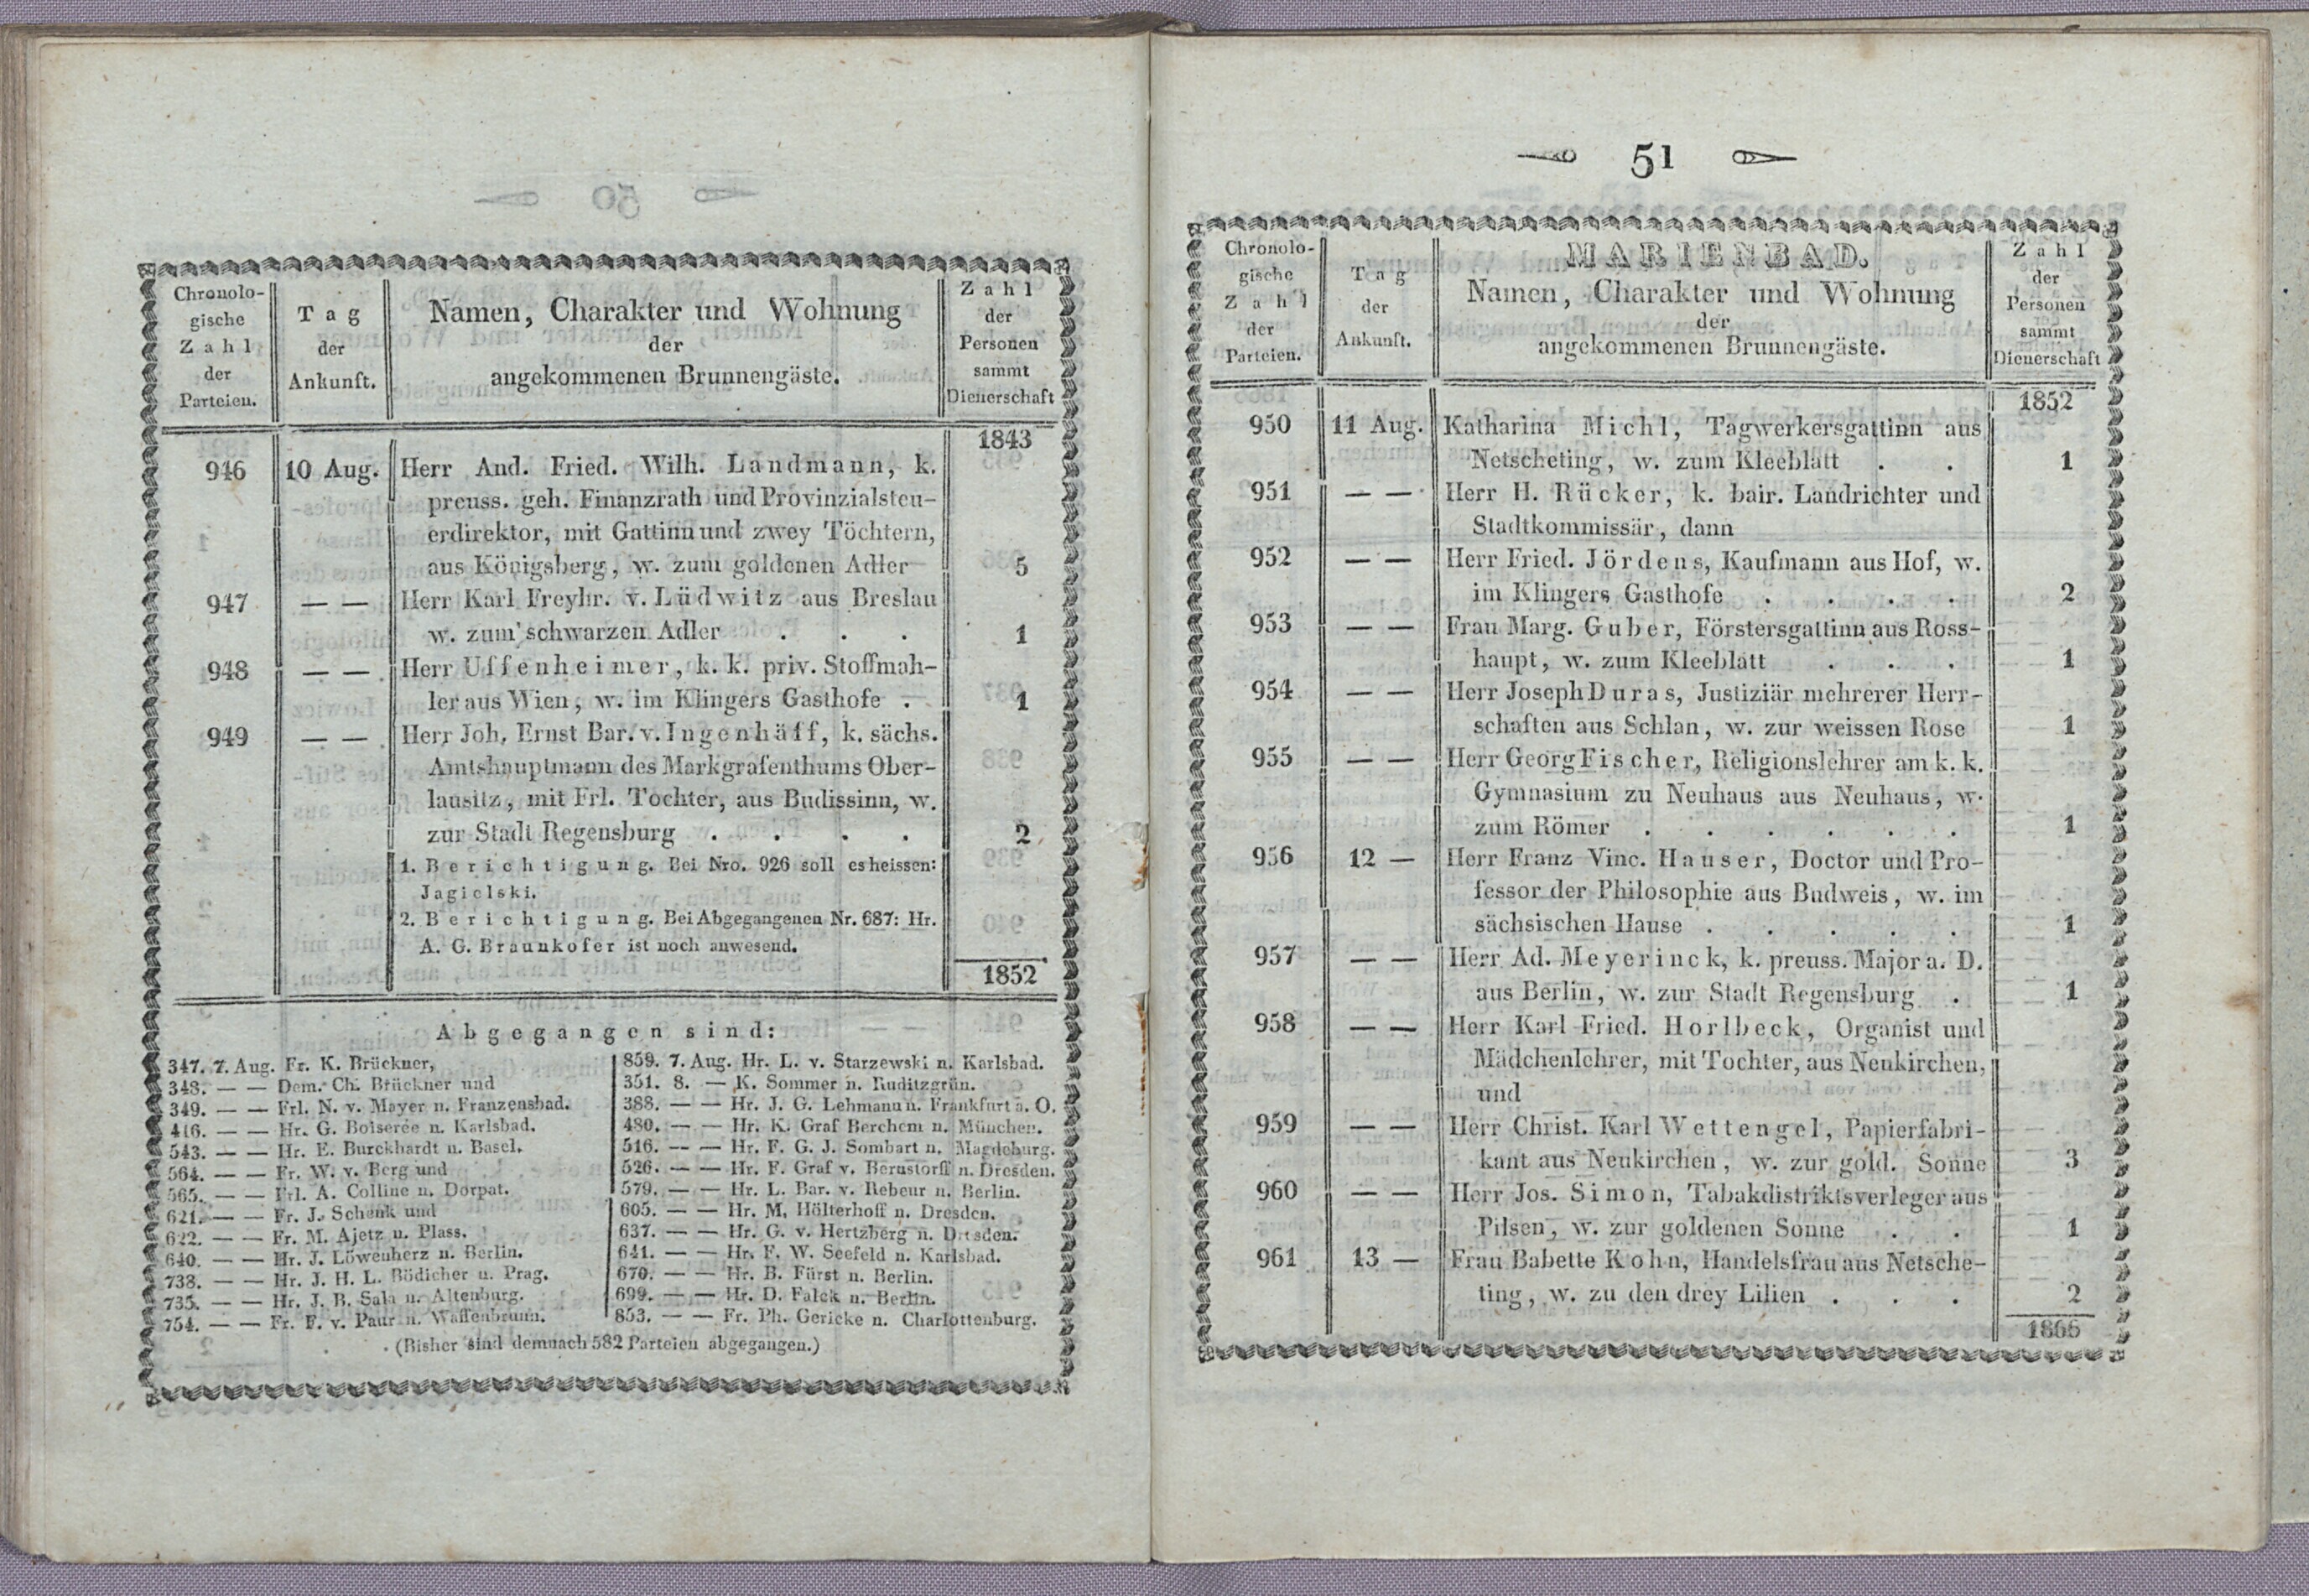 Chronolo-
gische
Zahl
der
Parteien.
Tag
der
Ankunft.
Namen, Charakter und Wohnung
der
angekommenen Brunnengäste.
Zahl
der
Personen
sammt
Dienerschaft
1843
946 10 Aug. Herr And. Fried. Wilh. Landmann, k.
preuss. geh. Finanzrath und Provinzialsteu-
erdirektor, mit Gattinn und zwey Töchtern,
aus Königsberg, w. zum goldenen Adler 5
947 — — Herr Karl Freyhr. v. Lüdwitz aus Breslau
w. zum schwarzen Adler . . . 1
948 — — Herr Uffenheimer, k. k. priv. Stoffmah-
ler aus Wien, w. im Klingers Gasthofe . 1
949 — — Herr Joh. Ernst Bar. v. Ingenhäff, k. sächs.
Amtshauptmann des Markgrafenthums Ober-
lausitz, mit Frl. Tochter, aus Budissinn, w.
zur Stadt Regensburg . . . . 2
1. Berichtigung. Bei Nro. 926 soll es heissen:
Jagielski.
2. Berichtigung. Bei Abgegangenen Nr. 687: Hr.
A. G. Braunkofer ist noch anwesend.
1852
Abgegangen sind:
347. 7. Aug. Fr. K. Brückner,
348. — — Dem. Ch. Brückner und
349. — — Frl. N. v. Mayer n. Franzensbad.
416. — — Hr. G. Boiserée n. Karlsbad.
543. — — Hr. E. Burckhardt n. Basel.
564. — — Fr. W. v. Berg und
565. — — Frl. A. Colline n. Dorpat.
621. — — Fr. J. Schenk und
622. — — Fr. M. Ajetz n. Plass.
640. — — Hr. J. Löwenherz n. Berlin.
738. — — Hr. J. H. L. Bödicher n. Prag.
735. — — Hr. J. B. Sala n. Altenburg.
754. — — Fr. F. v. Paur n. Waffenbrunn.
859. 7. Aug. Hr. L. v. Starzewski n. Karlsbad.
351. 8. — K. Sommer n. Ruditzgrün.
388. — — Hr. J. G. Lehmann n. Frankfurt a. O.
480. — — Hr. K. Graf Berchem n. München.
516. — — Hr. F. G. J. Sombart n. Magdeburg.
526. — — Hr. F. Graf v. Bernstorff n. Dresden.
579. — — Hr. L. Bar. v. Rebeur n. Berlin.
605. — — Hr. M. Hölterhoff n. Dresden.
637. — — Hr. G. v. Hertzberg n. Dresden.
641. — — Hr. F. W. Seefeld n. Karlsbad.
670. — — Hr. B. Fürst n. Berlin.
699. — — Hr. D. Falck n. Berlin.
853. — — Fr. Ph. Gericke n. Charlottenburg.
(Bisher sind demnach 582 Parteien abgegangen.)
51
Chronolo-
gische
Zahl
der
Parteien.
Tag
der
Ankunft.
MARIENBAD.
Namen, Charakter und Wohnung
der
angekommenen Brunnengäste.
Zahl
der
Personen
sammt
Dienerschaft
1852
950 11 Aug. Katharina Michl, Tagwerkersgattinn aus
Netscheting, w. zum Kleeblatt . . 1
951 — — Herr H. Rücker, k. bair. Landrichter und
Stadtkommissär, dann
952 — — Herr Fried. Jördens, Kaufmann aus Hof, w.
im Klingers Gasthofe . . . . 2
953 — — Frau Marg. Guber, Förstersgattinn aus Ross-
haupt, w. zum Kleeblatt . . . 1
954 — — Herr Joseph Duras, Justiziär mehrerer Herr-
schaften aus Schlan, w. zur weissen Rose 1
955 — — Herr Georg Fischer, Religionslehrer am k. k.
Gymnasium zu Neuhaus aus Neuhaus, w.
zum Römer . . . . . . 1
956 12 — Herr Franz Vinc. Hauser, Doctor und Pro-
fessor der Philosophie aus Budweis, w. im
sächsischen Hause . . . . . 1
957 — — Herr Ad. Meyerinck, k. preuss. Major a. D.
aus Berlin, w. zur Stadt Regensburg . 1
958 — — Herr Karl Fried. Horlbeck, Organist und
Mädchenlehrer, mit Tochter, aus Neukirchen,
und
959 — — Herr Christ. Karl Wettengel, Papierfabri-
kant aus Neukirchen, w. zur gold. Sonne 3
960 — — Herr Jos. Simon, Tabakdistriktsverleger aus
Pilsen, w. zur goldenen Sonne . . 1
961 13 — Frau Babette Kohn, Handelsfrau aus Netsche-
ting, w. zu den drey Lilien . . . 2
1866